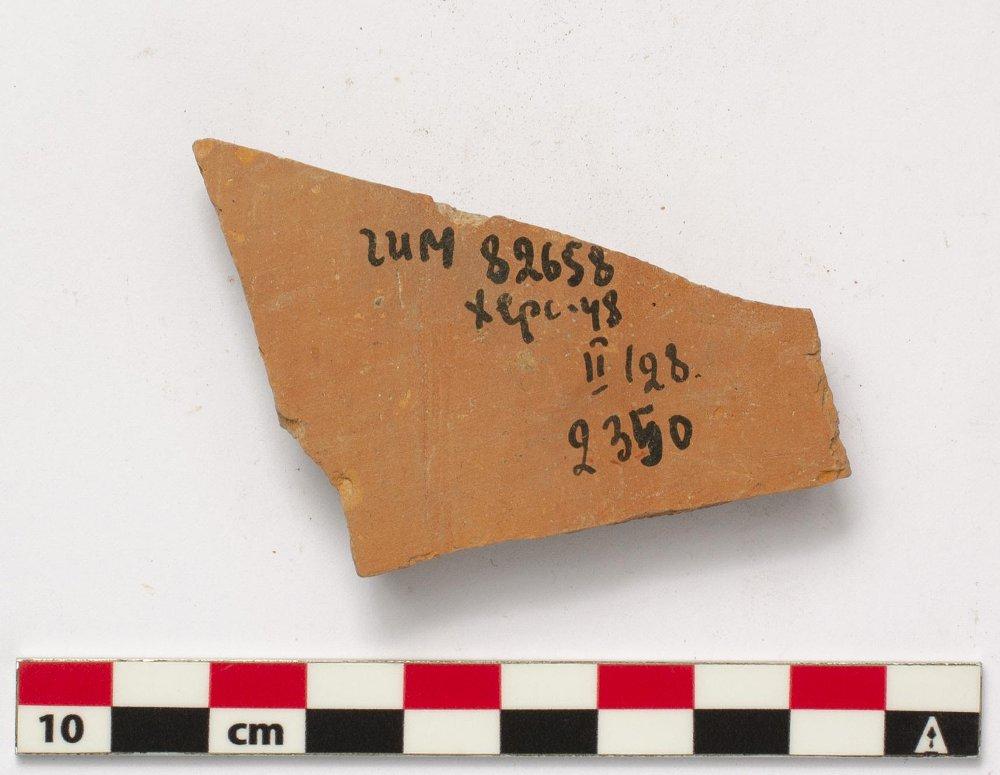 гим 82658
Херс-48
II /28.
2350
10 cm